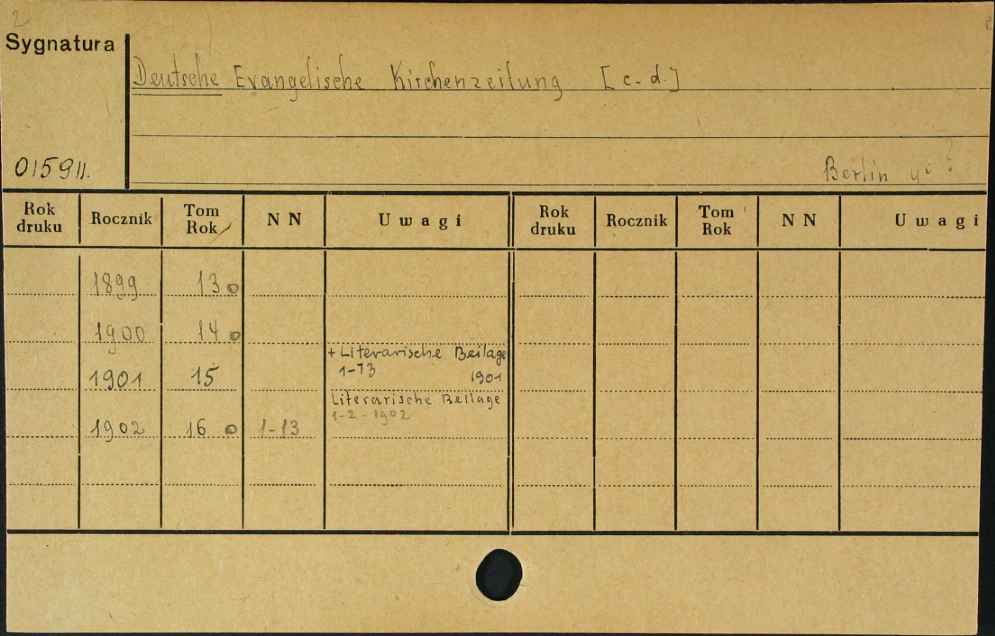 2
Sygnatura
Deutsche Evangelische Kirchenzeitung [c.d.]
015911.
Berlin
Rok druku Rocznik Tom Rok NN Uwagi Rok druku Rocznik Tom Rok NN Uwagi
1899 13
1900 14
+ Literarische Beilage
1901 15 1-13 1901
Literarische Beilage
1-2-1902
1902 16 1-13